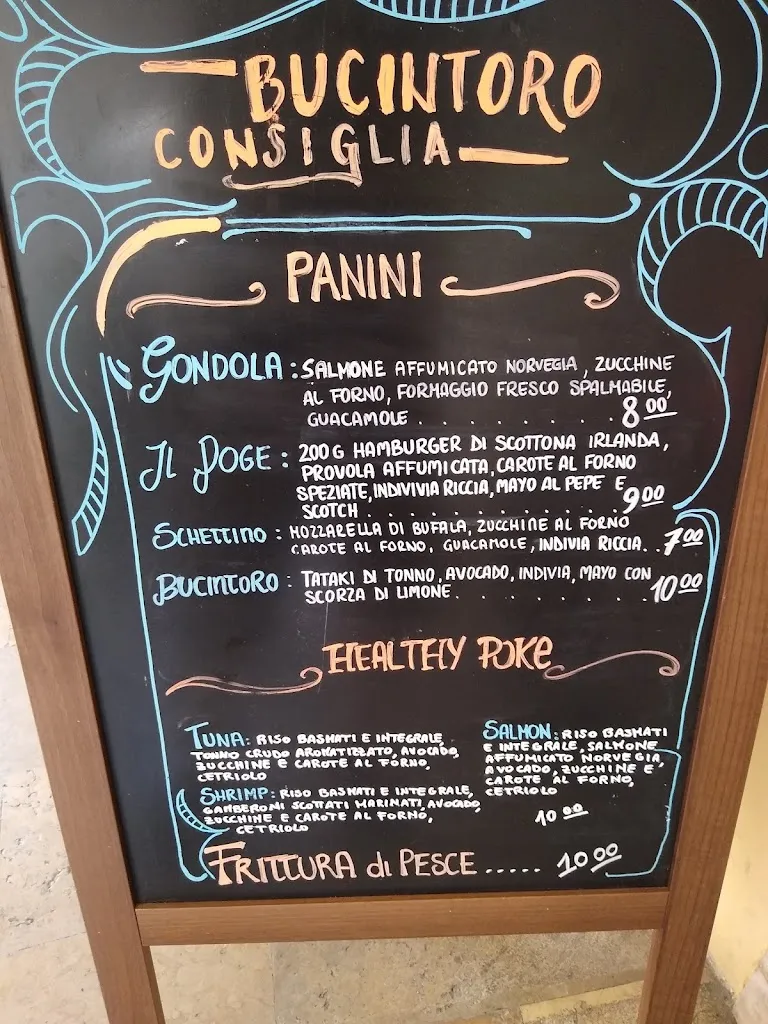 BUCINTORO
CONSIGLIA
PANINI
GONDOLA : SALMONE AFFUMICATO NORVEGIA, ZUCCHINE
AL FORNO, FORMAGGIO FRESCO SPALMABILE,
GUACAMOLE . . . . . . . . 8 00
IL DOGE : 200 G HAMBURGER DI SCOTTONA IRLANDA,
PROVOLA AFFUMICATA, CAROTE AL FORNO
SPEZIATE, INDIVIVIA RICCIA, MAYO AL PEPE E
SCOTCH . . . . . . . . . . . . 9 00
SCHETTINO : MOZZARELLA DI BUFALA, ZUCCHINE AL FORNO
CAROTE AL FORNO, GUACAMOLE, INDIVIA RICCIA. . 7 00
BUCINTORO : TATAKI DI TONNO, AVOCADO, INDIVIA, MAYO CON
SCORZA DI LIMONE. . . . . . . . 10 00
HEALTHY POKE
TUNA: RISO BASMATI E INTEGRALE,
TONNO CRUDO AROMATIZZATO, AVOCADO,
ZUCCHINE E CAROTE AL FORNO,
CETRIOLO
SHRIMP: RISO BASMATI E INTEGRALE,
GAMBERONI SCOTTATI MARINATI, AVOCADO,
ZUCCHINE E CAROTE AL FORNO,
CETRIOLO
SALMON: RISO BASMATI
E INTEGRALE, SALMONE
AFFUMICATO NORVEGIA,
AVOCADO, ZUCCHINE E
CAROTE AL FORNO,
CETRIOLO
10 00
FRITTURA di PESCE ..... 10 00